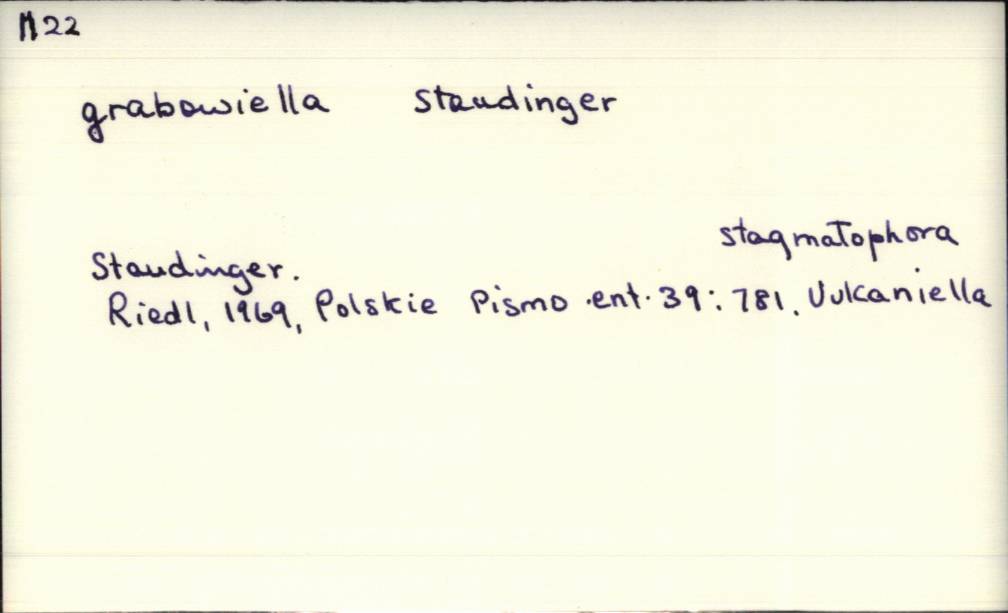 M22
grabowiella Staudinger
stagmatophora
Staudinger.
Riedl, 1969, Polskie Pismo ent. 39: 781. Vulcaniella